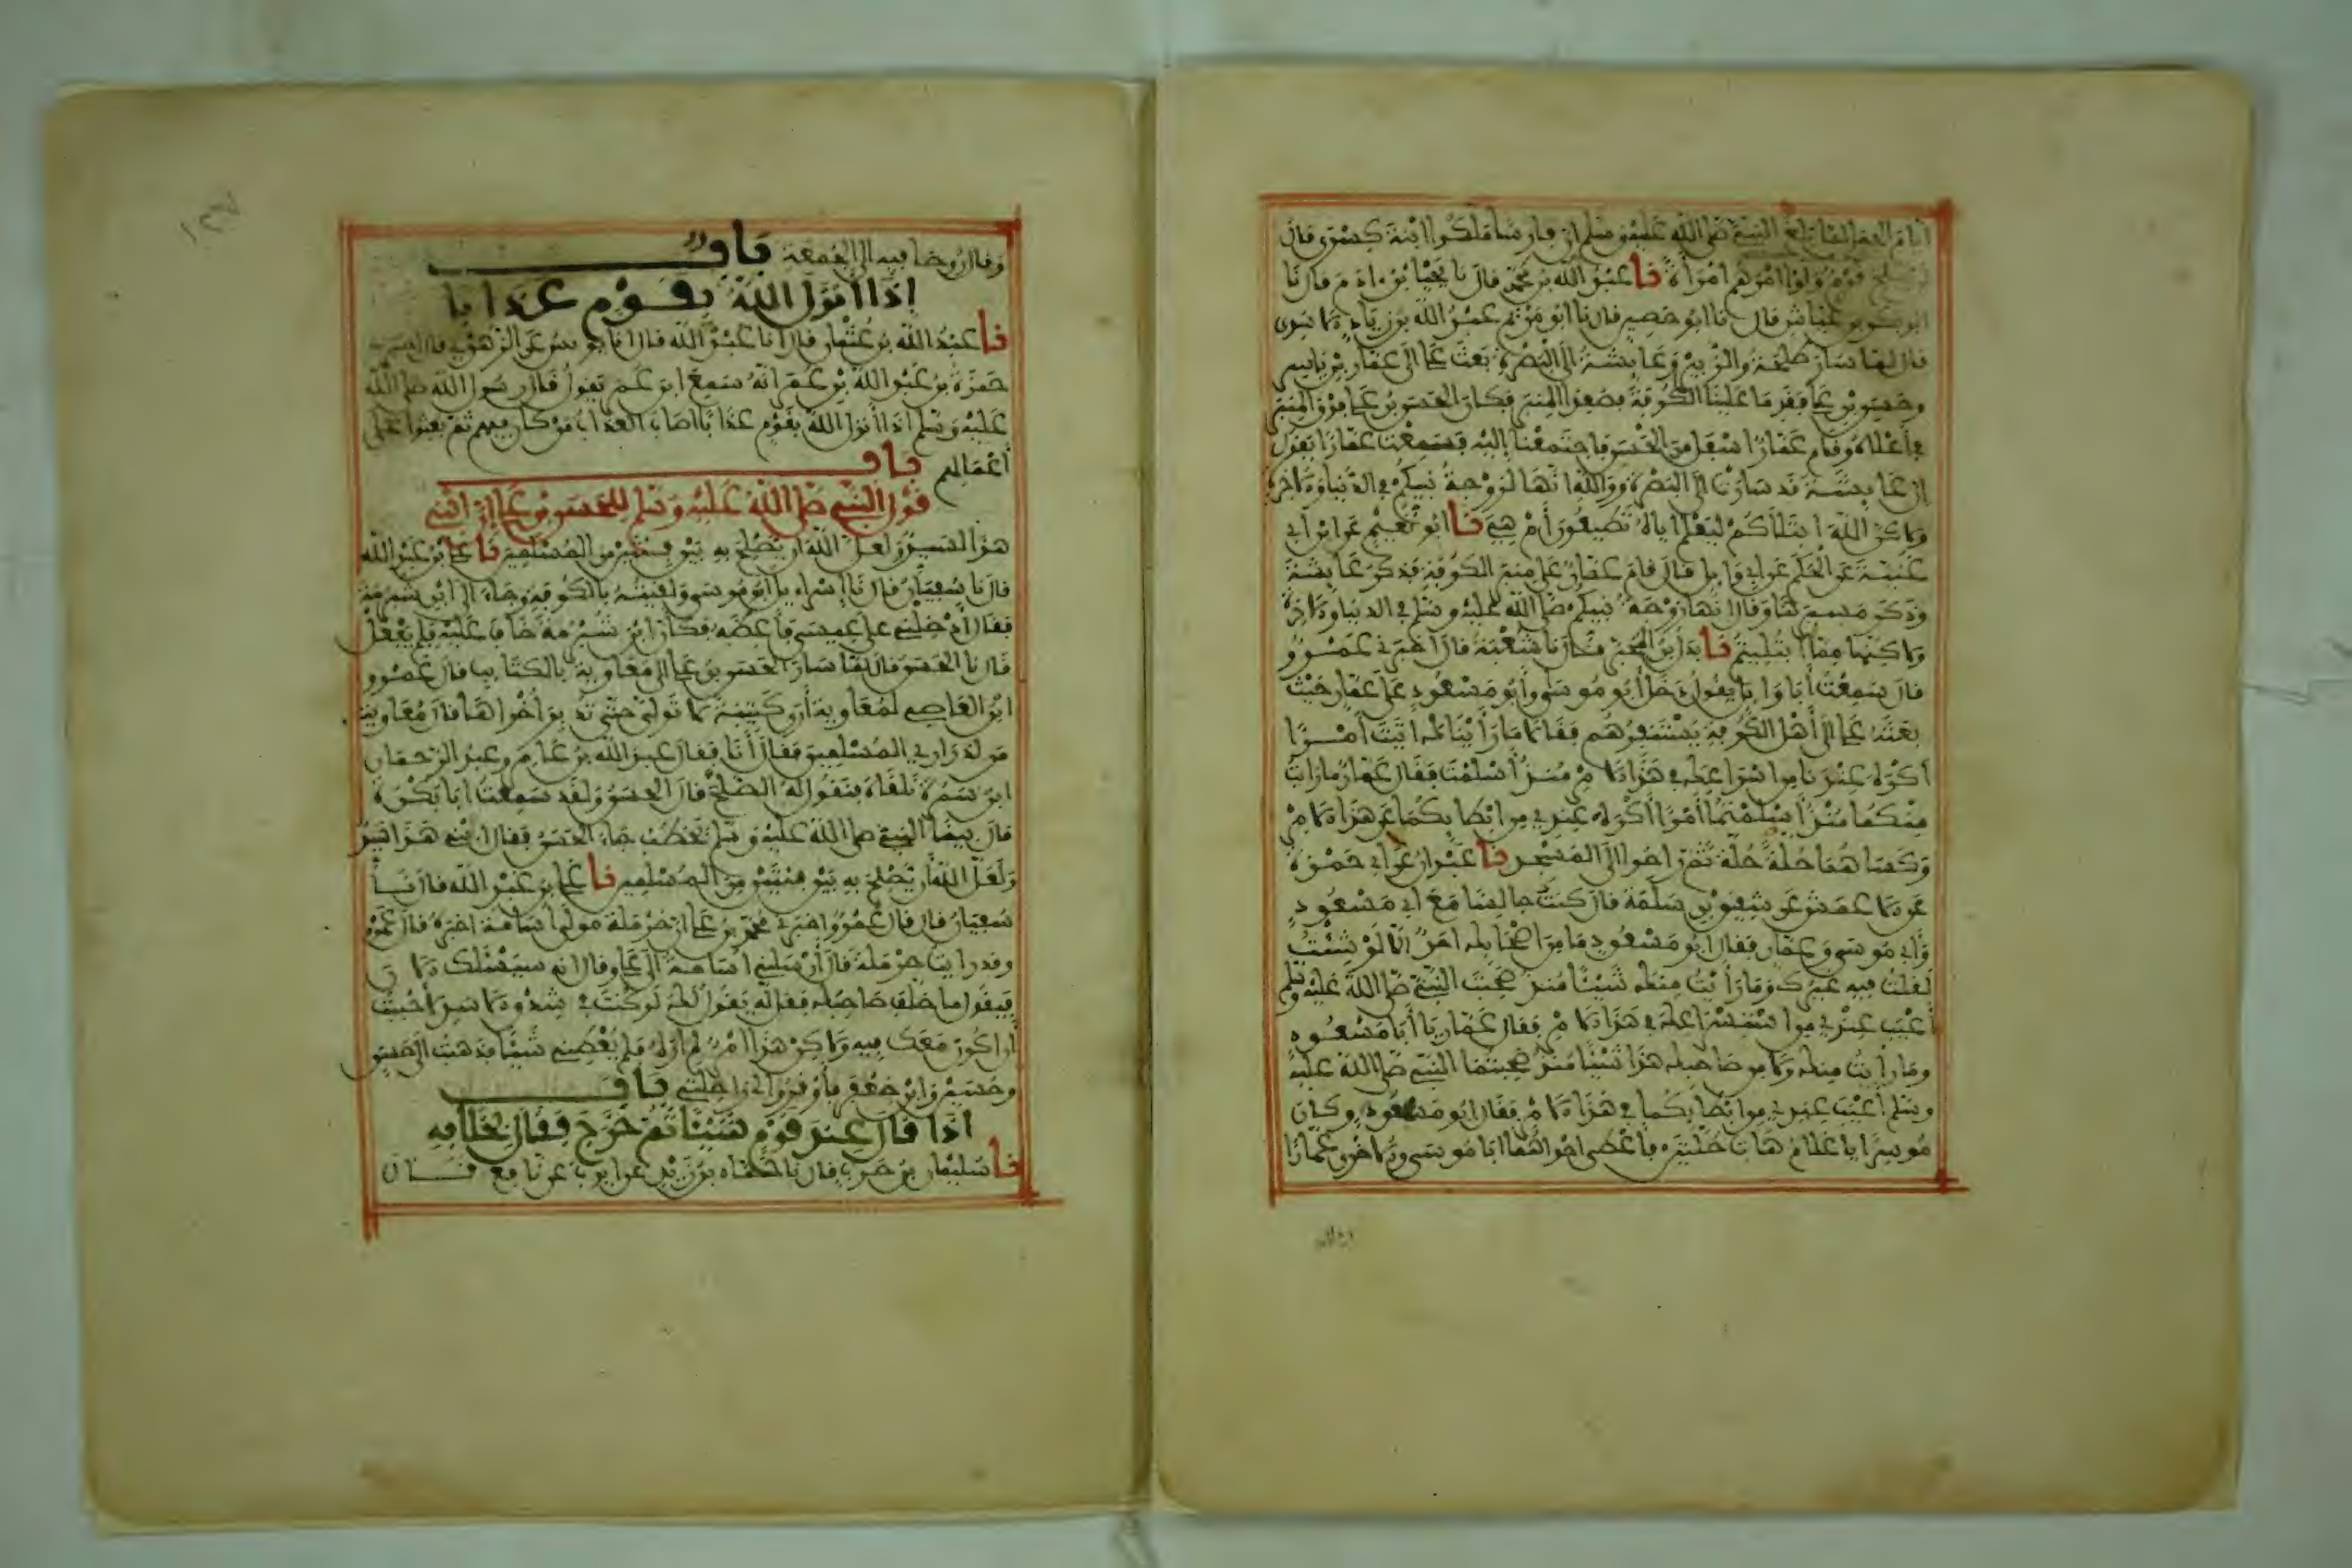 أيام الجمل لما بلغ النبي صلى الله عليه وسلم أن فارسا ملكوا ابنة كسرى قال
يفلح قوم ولوا أمرهم امرأة نا عبد الله بن محمد قال نا يحيا بن ءادم قال نا
أبو بكر بن عياش قال نا أبو حصين قال نا أبو مريم عبد الله بن زياد الاسدي
قال لما سار طلحة والزبير وعايشة إلى البصرة بعث علي إلى عمار بن ياسر
وحسن بن علي فقدما علينا الكوفة فصعدا المنبر فكان الحسن بن علي فوق المنبر
في أعلاه وقام عمار أسفل من الحسن فاجتمعنا إليه فسمعت عمارا يقول
إن عايشة قد سارت إلى البصرة ووالله إنها لزوجة نبيكم في الدنيا والاخرة
ولاكن الله ابتلاكم ليعلم إياه تطيعون أم هي نا أبو نعيم عن ابن أبي
غنية عن الحكم عن أبي وايل قال قام عمار على منبر الكوفة فذكر عايشة
وذكر مسيرها وقال إنها زوجة نبيكم صلى الله عليه وسلم في الدنيا والاخرة
ولاكنها مما ابتليتم نا بدل بن المحبر قال نا شعبة قال أخبرني عمرو
قال سمعت أبا وايل يقول دخل أبو موسى وأبو مسعود على عمار حيث
بعثه علي إلى أهل الكوفة يستنفرهم فقالا ما رأيناك أتيت أمرا
أكره عندنا من إسراعك في هذا الامر منذ أسلمت فقال عمار ما رأيت
منكما منذ أسلمتما أمرا أكره عندي من إبطايكما عن هذا الامر
وكساهما حلة حلة ثم راحوا إلى المسجد نا عبدان عن أبي حمزة
عن الاعمش عن شقيق بن سلمة قال كنت جالسا مع أبي مسعود
وأبي موسى وعمار فقال أبو مسعود ما من أصحابك أحد إلا لو شئت
لقلت فيه غيرك وما رأيت منك شيئا منذ صحبت النبي صلى الله عليه وسلم
أعيب عندي من استسراعك في هذا الامر فقال عمار يا أبا مسعود
وما رأيت منك ولا من صاحبك هذا شيئا منذ صحبتما النبي صلى الله عليه
وسلم أعيب عندي من إبطايكما في هذا الامر فقال أبو مسعود وكان
موسرا يا غلام هات حلتين فأعطى إحداهما أبا موسى والاخرى عمارا
وقال روحا فيه إلى الجمعة باب
إذا أنزل الله بقوم عذابا
نا عبد الله بن عثمان قال أنا عبد الله قال أنا يونس عن الزهري قال أخبرني
حمزة بن عبد الله بن عمر أنه سمع ابن عمر يقول قال رسول الله صلى الله
عليه وسلم إذا أنزل الله بقوم عذابا أصاب العذاب من كان فيهم ثم بعثوا على
أعمالهم باب
قول النبي صلى الله عليه وسلم للحسن بن علي إن ابني
هذا لسيد ولعل الله أن يصلح به بين فئتين من المسلمين نا علي بن عبد الله
قال نا سفيان قال نا إسراءيل أبو موسى ولقيته بالكوفة وجاء إلى ابن شبرمة
فقال أدخلني على عيسى فأعظه فكأن ابن شبرمة خاف عليه فلم يفعل
قال نا الحسن قال لما سار الحسن بن علي إلى معاوية بالكتايب قال عمرو
ابن العاصي لمعاوية أرى كتيبة لا تولي حتى تدبر أخراها قال معاوية
من لذراري المسلمين فقال أنا فقال عبد الله بن عامر وعبد الرحمان
ابن سمرة نلقاه فنقول له الصلح قال الحسن ولقد سمعت أبا بكرة
قال بينما النبي صلى الله عليه وسلم يخطب جاء الحسن فقال ابني هذا سيد
ولعل الله أن يصلح به بين فئتين من المسلمين نا علي بن عبد الله قال نا
سفيان قال قال عمرو أخبرني محمد بن علي أن حرملة مولى أسامة أخبره قال عمرو
وقد رأيت حرملة قال أرسلني أسامة إلى علي وقال إنه سيسئلك الان
فيقول ما خلف صاحبك فقل له يقول لك لو كنت في شدق الاسد لأحببت
أن أكون معك فيه ولاكن هذا أمر لم أره فلم يعطني شيئا فذهبت إلى حسن
وحسين وابن جعفر فأوقروا لي راحلتي باب
إذا قال عند قوم شيئا ثم خرج فقال بخلافه
نا سليمان بن حرب قال نا حماد بن زيد عن أيوب عن نافع قال